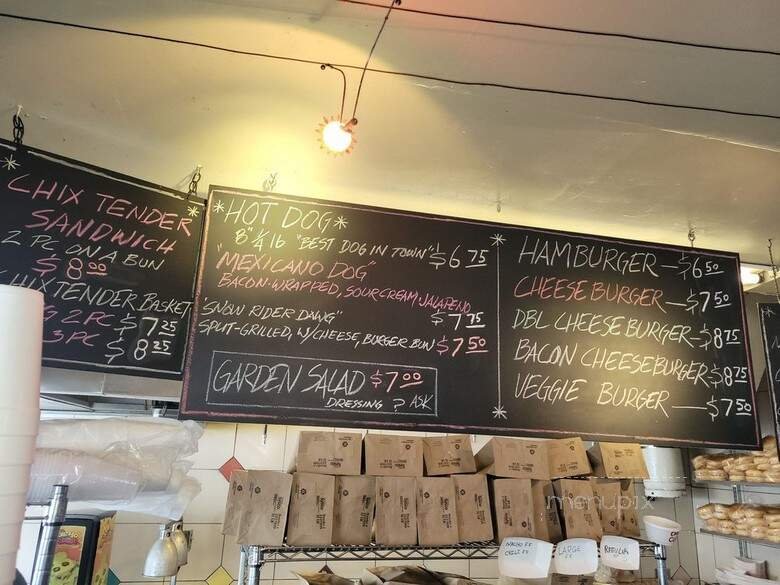 CHIX TENDER
SANDWICH
2 PC ON A BUN
$8.00
CHIX TENDER BASKET
2 PC $7.25
3 PC $8.25
*HOT DOG*
8" 1/4 lb "BEST DOG IN TOWN" $6.75
"MEXICANO DOG"
BACON-WRAPPED, SOUR CREAM JALAPENO
$7.75
"SNOW RIDER DAWG"
SPLIT-GRILLED, W/CHEESE, BURGER BUN $7.50
GARDEN SALAD $7.00
DRESSING ? ASK
HAMBURGER—$6.50
CHEESE BURGER—$7.50
DBL CHEESE BURGER-$8.75
BACON CHEESEBURGER-$8.75
VEGGIE BURGER—$7.50
menupix
LARGE
REGULAR